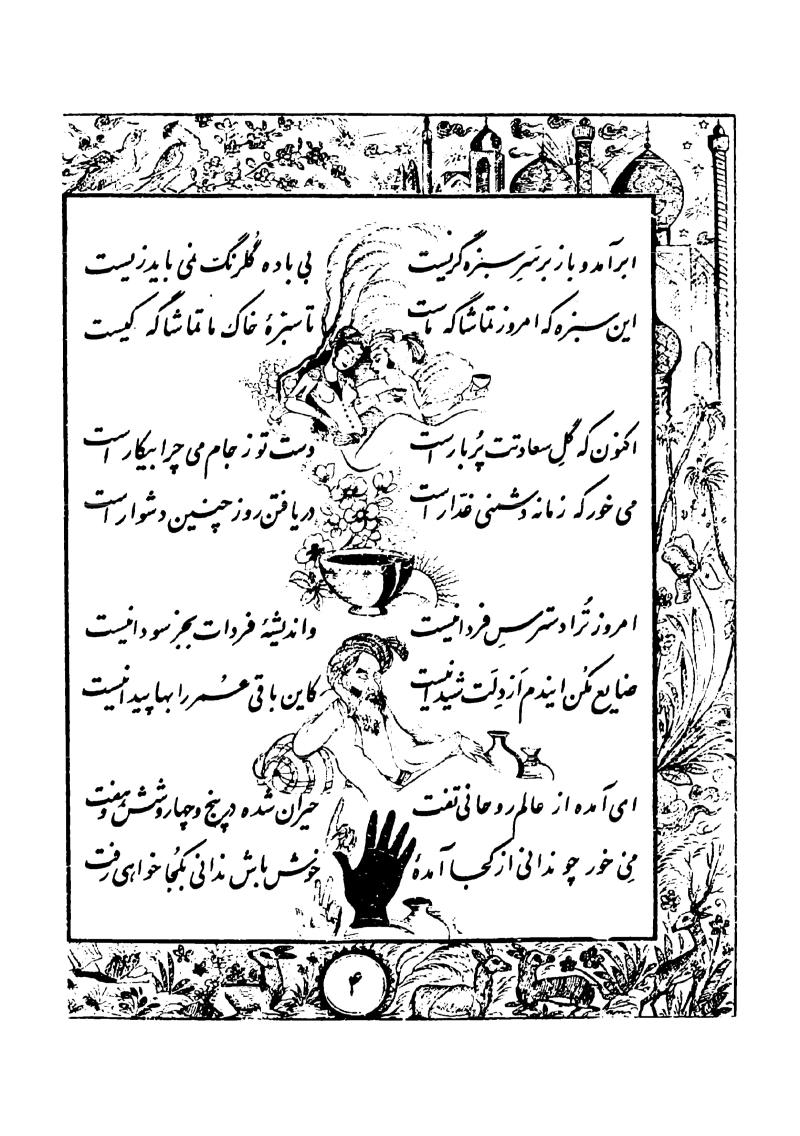 ابر آمد و باز بر سَرِ سبزه گریست بی باده گُلرنگ نمی باید زیست
این سبزه که امروز تماشاگه ماست تا سبزهٔ خاک ما تماشاگه کیست
اکنون که گُلِ سعادتت پُر بار است دست تو ز جام می چرا بیکار است
می خور که زمانه دشمنی غدّار است دریافتن روز چنین دشوار است
امروز تُرا دسترسِ فردا نیست واندیشهٔ فردات بجز سودا نیست
ضایع مکُن ایندم اَر دلَت شیدا نیست کاین باقی عمر را بها پیدا نیست
ای آمده از عالم روحانی تفت حیران شده در پنج و چهار و شش و هفت
می خور چو ندانی از کجا آمدهٔ خوش باش ندانی بکجا خواهی رفت
۴